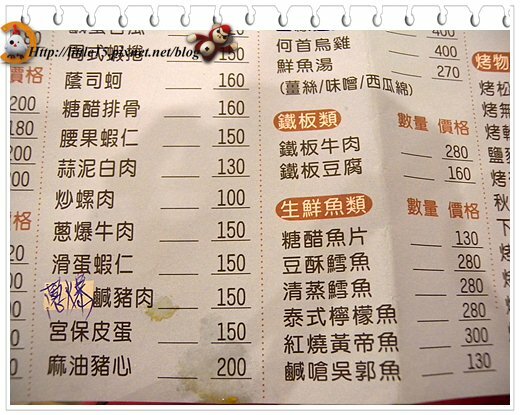 Http://lulu15.pixnet.net/blog
價格
200
180
200
200
價格
160
150
蔭司蚵 160
糖醋排骨 150
腰果蝦仁 150
蒜泥白肉 130
炒螺肉 100
蔥爆牛肉 150
滑蛋蝦仁 150
蔥爆鹹豬肉 150
宮保皮蛋 150
麻油豬心 200
400
何首烏雞 400
鮮魚湯 270
(薑絲/味噌/西瓜綿)
鐵板類 數量 價格
鐵板牛肉 280
鐵板豆腐 160
生鮮魚類 數量 價格
糖醋魚片 130
豆酥鱈魚 280
清蒸鱈魚 280
泰式檸檬魚 280
紅燒黃帝魚 300
鹹嗆吳郭魚 130
烤物
烤
烤
烤
鹽
烤
烤
秋
下
烤
烤